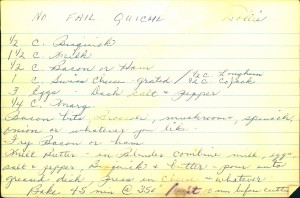 NO FAIL QUICHE
½ C. Bisquick
1½ C Milk
½ C. Bacon or Ham
1 C. Swiss Cheese - grated / ½ C Longhorn ½ C CoJack
3 Eggs - Dash Salt & Pepper
¼ C. Marg.
Bacon bits, mushrooms, spinach,
onion or whatever you like.
Fry Bacon or ham
Melt Butter - in Blender combine milk, eggs
salt & pepper, Bisquick & Butter - pour into
greased dish. Press in cheese & whatever
Bake 45 min @ 350° / sit 10 min before cutting